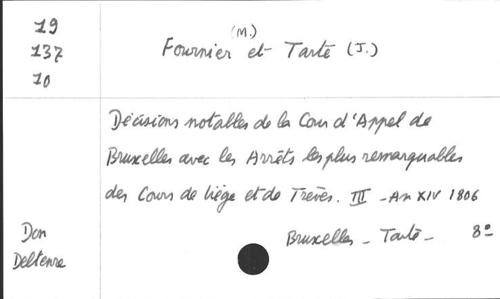 19
137
10
(M.)
Fournier et Tarte (J.)
Décisions notables de la Cour d'Appel de
Bruxelles avec les Arrêts les plus remarquables
des Cours de Liège et de Trèves. III - An XIV 1806
Bruxelles - Tarte - 8°
Don
Deltenre